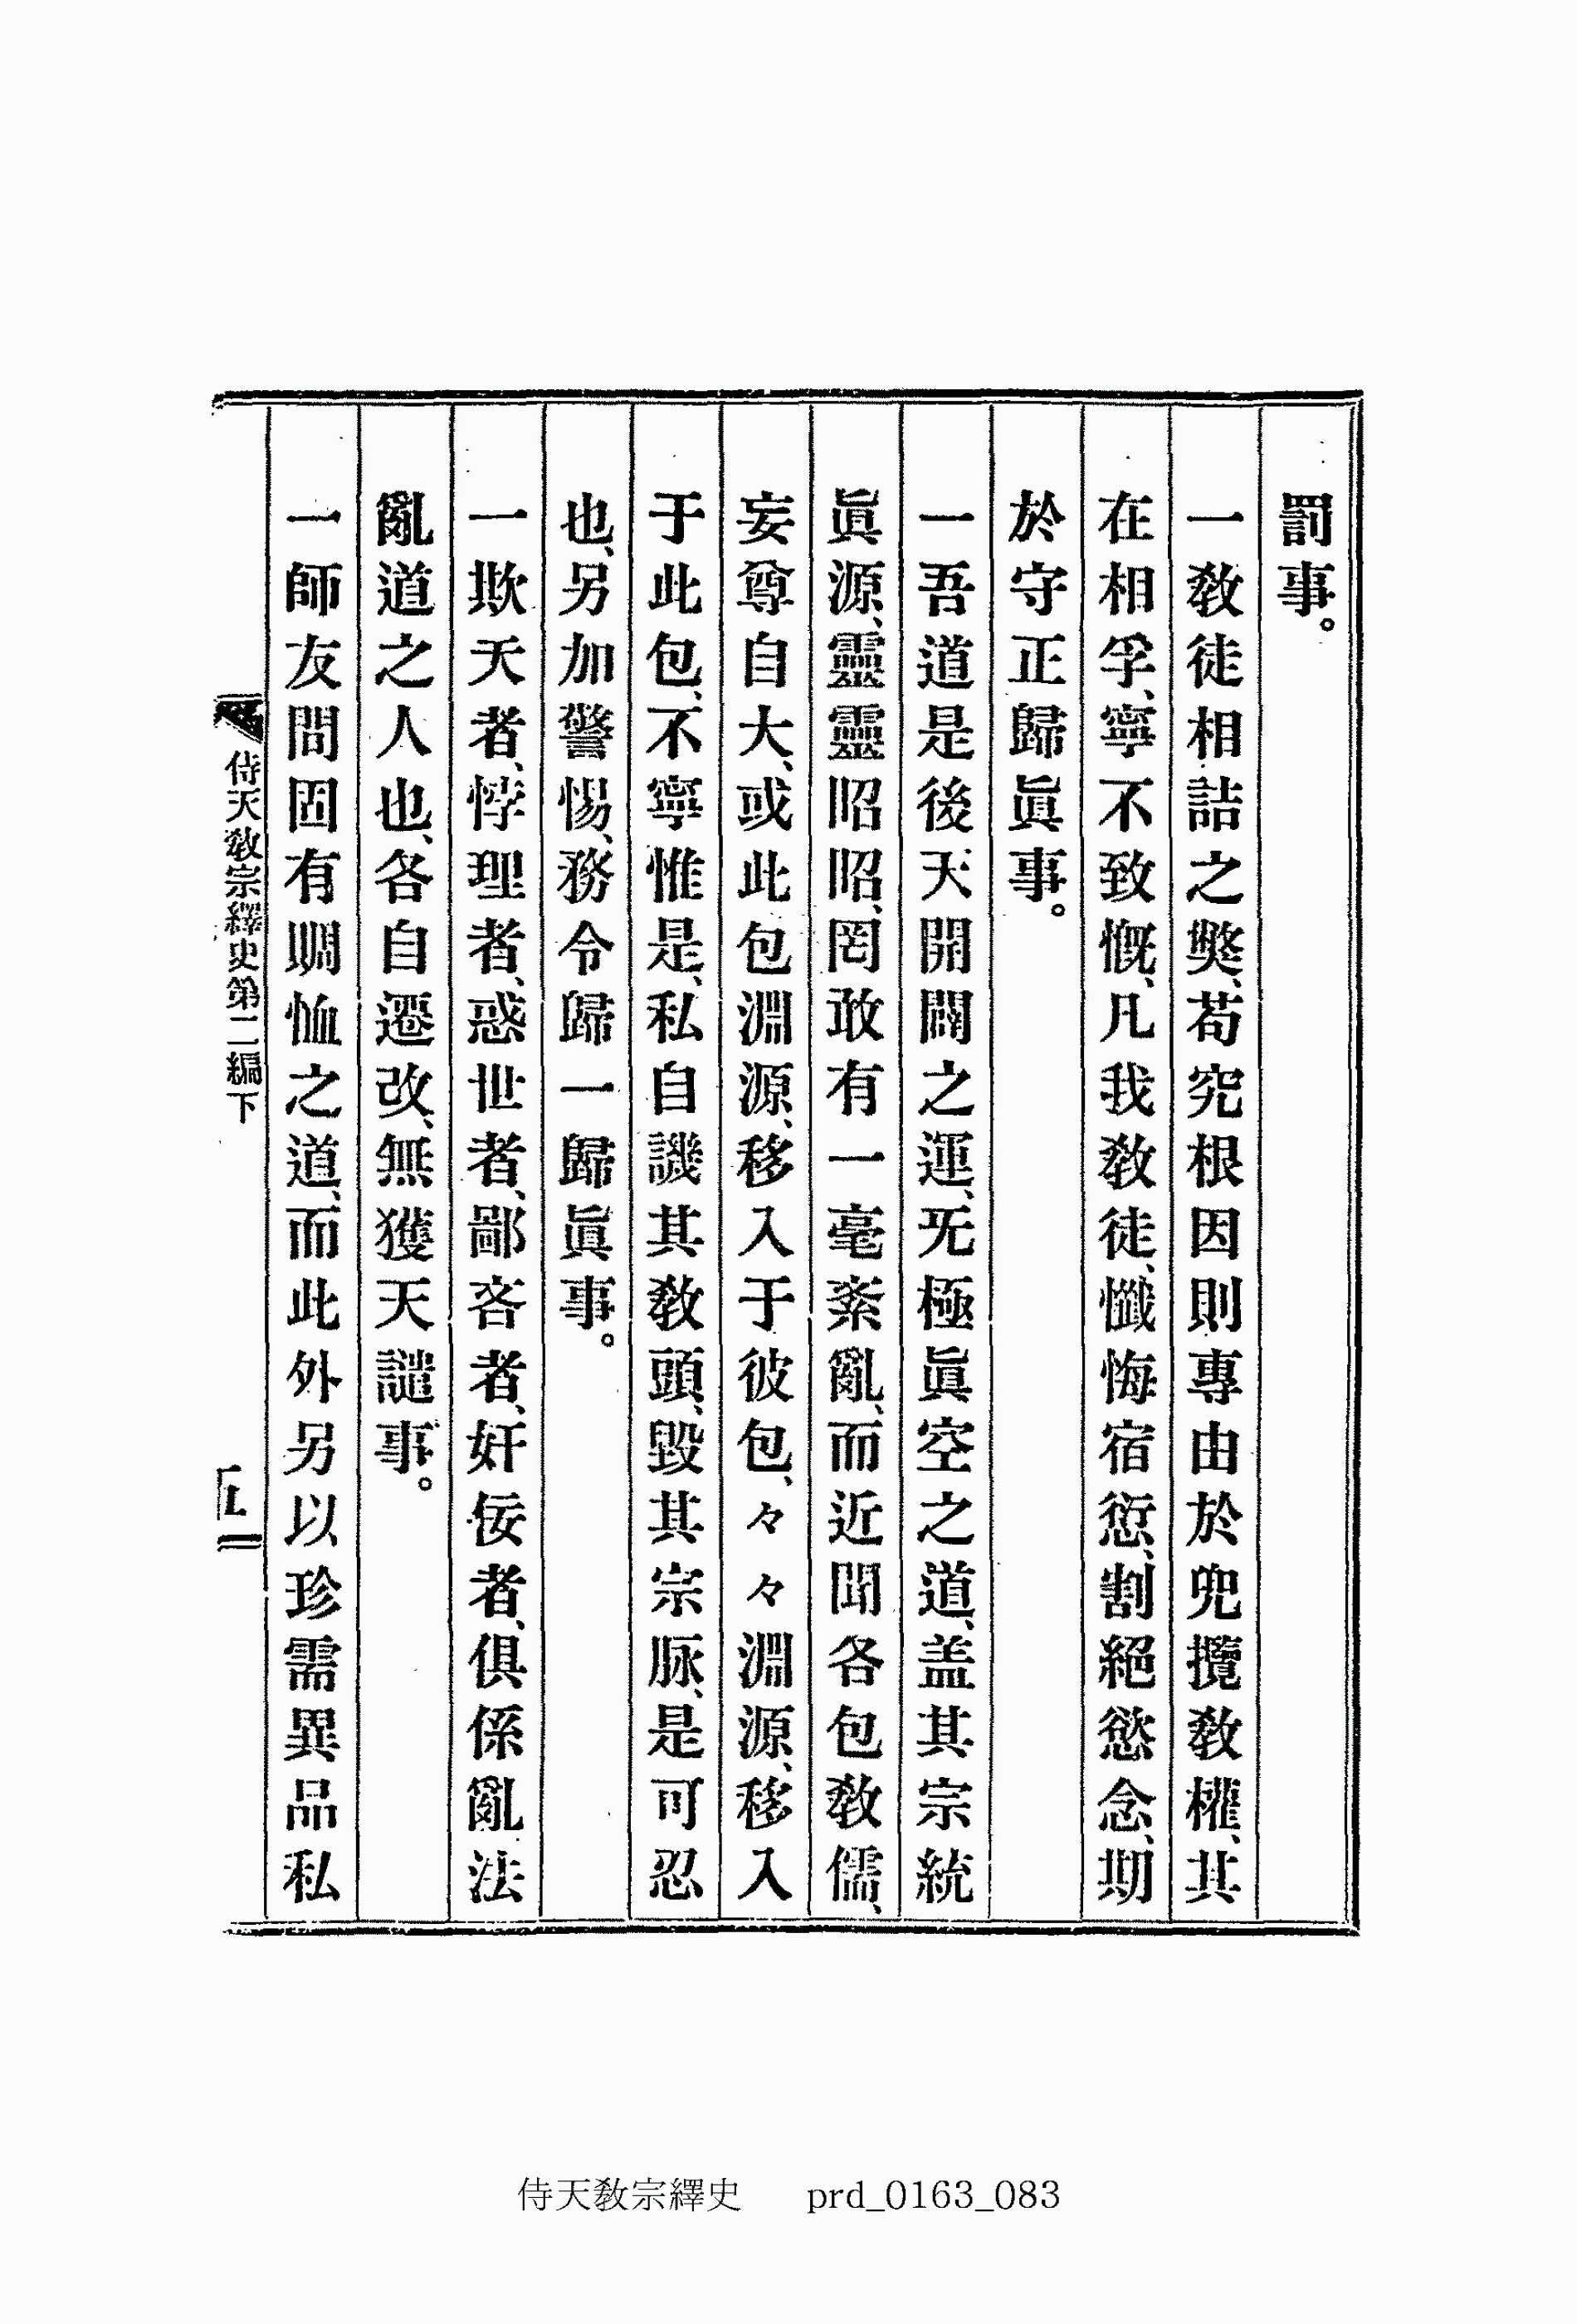 罰事。
一敎徒相詰之獘、苟究根因則專由於兜攬敎權、其
在相孚、寧不致慨、凡我敎徒、懺悔宿愆、割絕慾念、期
於守正歸眞事。
一吾道是後天開闢之運、旡極眞空之道、盖其宗統
眞源、靈靈昭昭、罔敢有一毫紊亂、而近聞各包敎儒、
妄尊自大、或此包淵源、移入于彼包、々々淵源、移入
于此包、不寧惟是、私自譏其敎頭、毀其宗脉、是可忍
也、另加警惕、務令歸一歸眞事。
一欺天者、悖理者、惑世者、鄙吝者、奸佞者、俱係亂法
亂道之人也、各自遷改、無獲天譴事。
一師友間固有賙恤之道、而此外另以珍需異品私
侍天敎宗繹史第二編下
五
侍天敎宗繹史 prd_0163_083